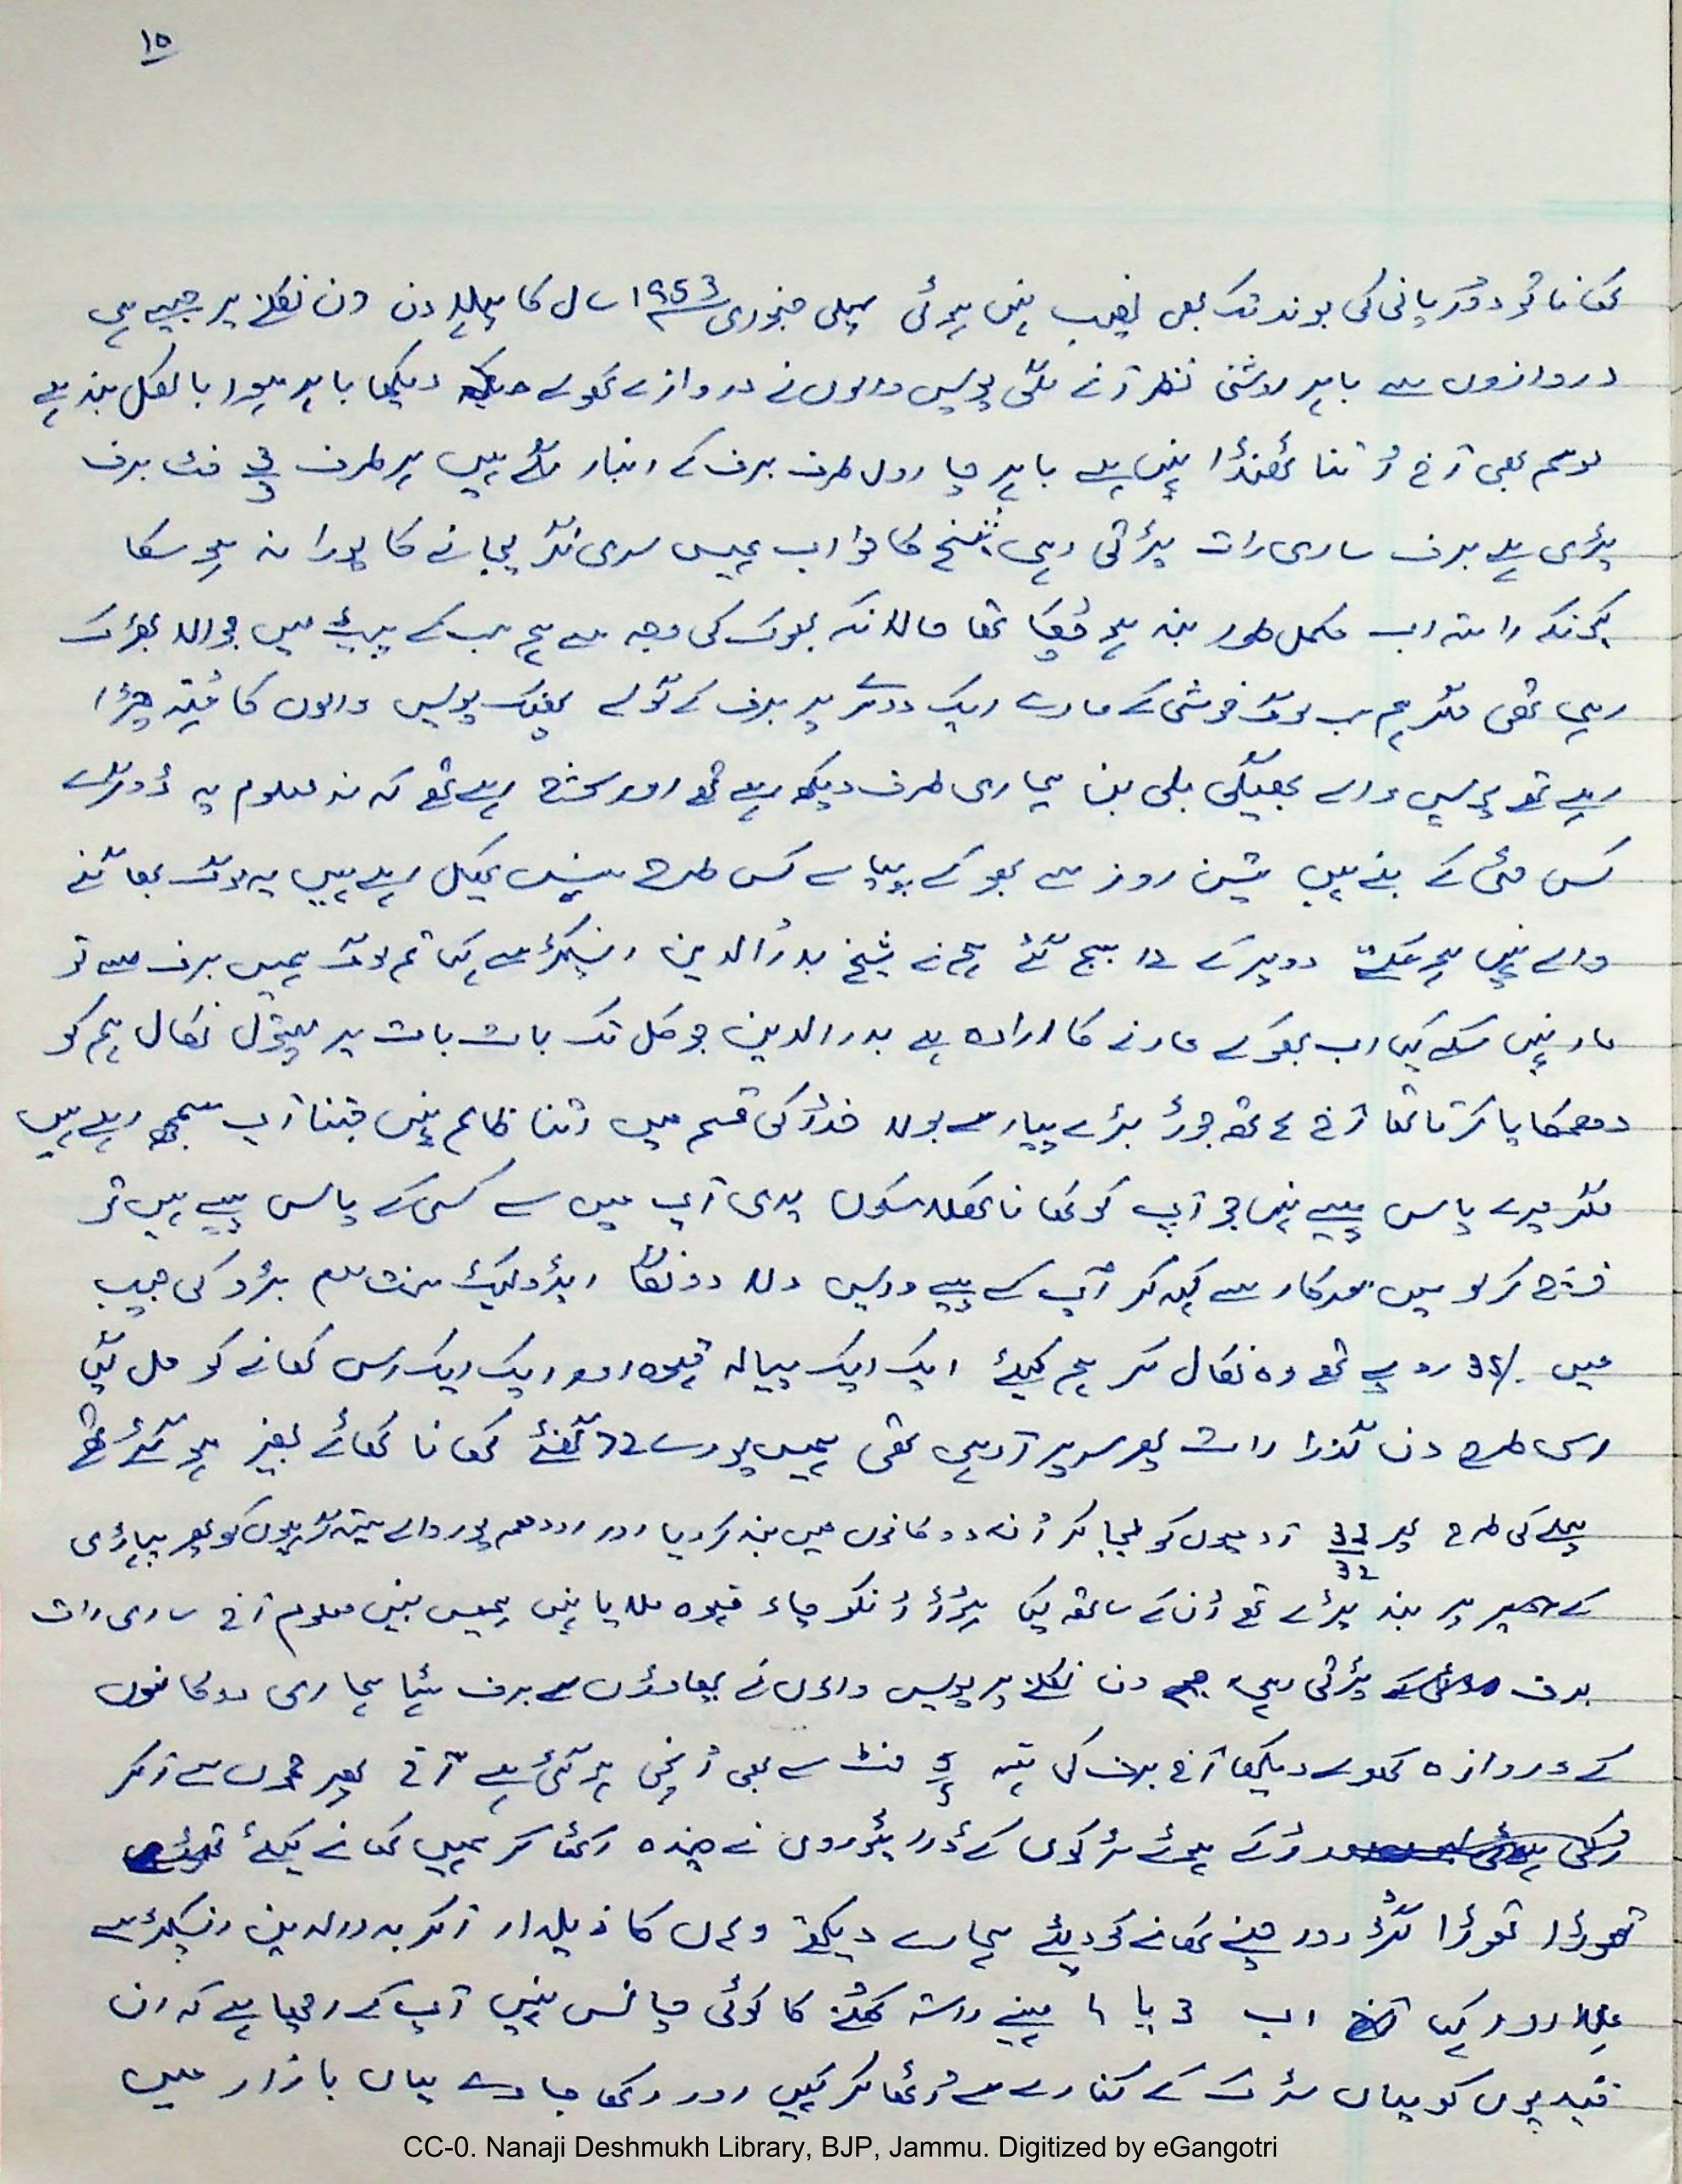 ۱۵
کھانا تو دور پانی کی بوند تک بھی نصیب نہیں ہوئی پہلی جنوری ۱۹53 سال کا پہلا دن دن نکلنے پر جیسے ہی
دروازوں سے باہر روشنی نظر آنے لگی پولیس والوں نے دروازے کھولے دیکھا باہر پورا بالکل بند ہے
موسم بھی آج اُتنا ٹھنڈا نہیں ہے باہر چاروں طرف برف کے انبار لگے ہیں ہر طرف فٹ برف
پڑی ہے برف ساری رات پڑتی رہی شیخ کا خواب ہمیں سری نگر لیجانے کا پورا نہ ہو سکا
کیونکہ راستہ اب مکمل طور بند ہو چُکا تھا حالانکہ بھوک کی وجہ سے ہم سب کے پیٹ میں جوالا بھڑک
رہی تھی مگر ہم سب لوگ خوشی کے مارے ایک دوسرے پر برف کے گولے پھینک پولیس والوں کا چڑا
رہے تھے پولیس والے بھیگی بلی بن ہماری طرف دیکھ رہے تھے اور سوچ رہے تھے کہ نہ معلوم یہ ڈوگرے
کس مٹی کے بنے ہیں تین روز سے بھوکے پیاسے کس طرح کھیل رہے ہیں یہ لوگ بھاگنے
والے نہیں ہو سکتے دوپہر کے 12 بج گئے ہم نے شیخ بدرُالدین انسپکٹر سے کہا تم لوگ ہمیں برف سے تو
مار نہیں سکے کیا اب بھوکے مارنے کا ارادہ ہے بدرالدین جو کل تک بات بات پر پستول نکال ہم کو
دھمکایا کرتا تھا آج ہاتھ جوڑ بڑے پیار سے بولا خدا کی قسم میں اتنا ظالم نہیں جتنا آپ سمجھ رہے ہیں
مگر میرے پاس پیسے نہیں جو آپ کو کھانا کھلا سکوں ہاں آپ میں سے کسی کے پاس پیسے ہیں تو
خرچ کر لو میں سرکار سے کہہ کر آپ کے پیسے واپس دلا دونگا ایڈوکیٹ کی جیب
میں 35/ روپے تھے وہ نکال کر ہم کیلئے ایک ایک پیالہ قہوہ اور ایک ایک رس کھانے کو مل گیا
اسی طرح دن گذرا رات پھر سر پر آ رہی تھی ہمیں پورے 72 گھنٹے کھانا کھائے بغیر ہو گئے تھے
پہلے کی طرح پھر 32 آدمیوں کو لیجا کر اُنہی دوکانوں میں بند کر دیا اور اودھم پور والے ستیہ گرہیوں کو پھر پہاڑی
کے پر بند پڑے تھے اُن کے ساتھ کیا ہوا اُنکو چاء قہوہ ملا یا نہیں ہمیں نہیں معلوم آج ساری رات
برف پڑتی رہی دن نکلنے پر پولیس والوں نے پھاوڑوں سے برف ہٹا ہماری دوکانوں
کے دروازہ کھولے دیکھا آج برف کی تہہ 5 فٹ سے بھی اُونچی ہو گئی ہے آج پھر جموں سے آ کر
رُکے ہوئے ٹرکوں کے ڈرائیوروں نے چندہ اکٹھا کر ہمیں کھانے کیلئے
تھوڑا تھوڑا گڑ اور چنے کھانے کو دیئے ہمارے دیکھتے وہاں کا ذیلدار آ کر بدرالدین انسپکٹر سے
ملا اور کہا اب 3 یا 4 مہینے راستہ کھلنے کا کوئی چانس نہیں آپ کے اچھا ہے کہ ان
قیدیوں کو یہاں سڑک کے کنارے سے اُٹھا کر کہیں اور رکھا جاوے یہاں بازار میں
CC-0. Nanaji Deshmukh Library, BJP, Jammu. Digitized by eGangotri